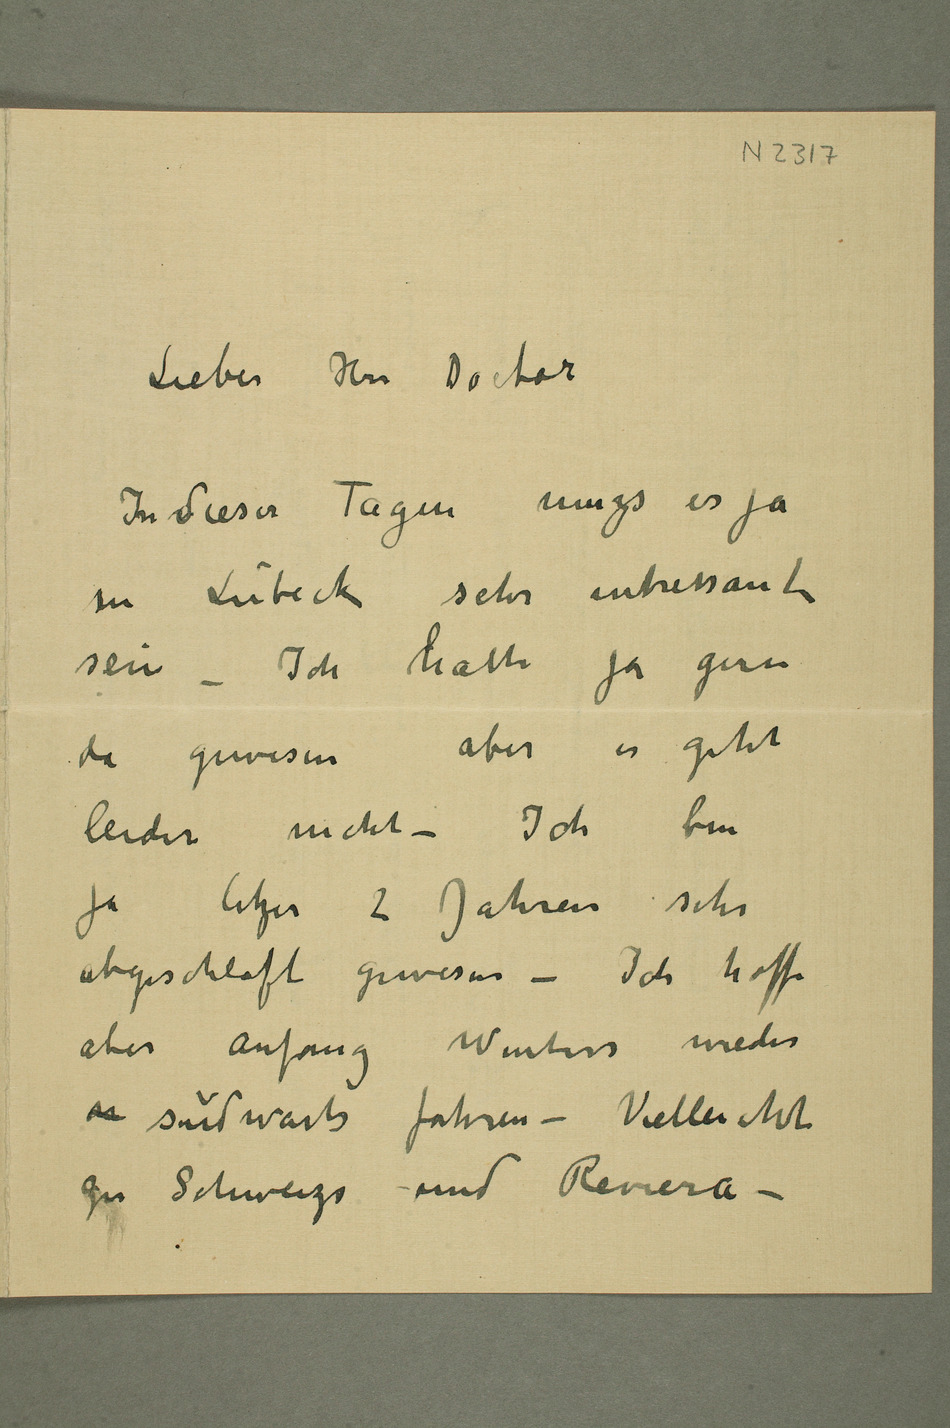 N 2317
Lieber Herr Doctor
In dieser Tagen mugs es ja
in Lübeck sehr intressant
sein – Ich hatte ja gern
da gewesen aber es geht
leider nicht – Ich bin
ja letzer 2 Jahren sehr
abgeschlaft gewesen – Ich hoffe
aber anfang Winters wieder
südwarts fahren – Vielleicht
Schweizs und Reviera –